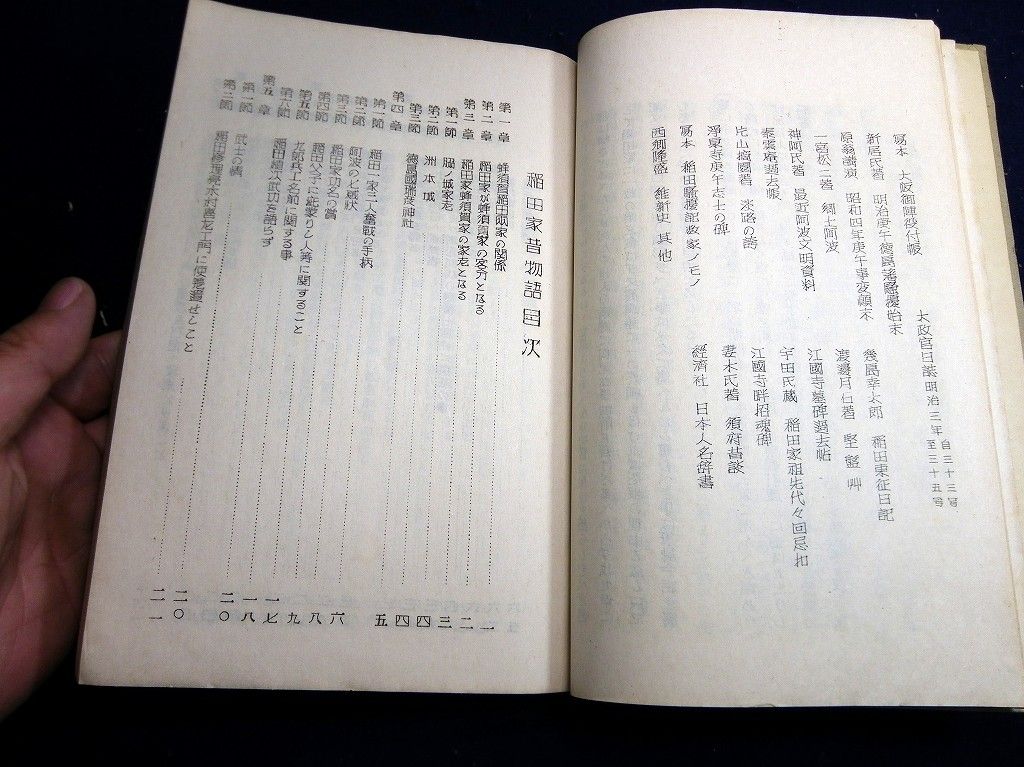 寫本 大阪御陣役付帳
新居氏著 明治庚午德島藩騷擾始末
原翁满演 昭和四年庚午事変顛末
一宮松二著 郷土阿波
神阿氏著 最近阿波文明資料
過去帳
片山 著 來路の語
淨泉寺庚午志士の碑
寫本 稲田騷擾記政家ノモノ
西郷隆盛 維新史 其他
太政官日誌明治三年自三十三号至三十五号
幾島幸太郎 稲田東征日記
渡邊月石著 堅磐艸
江國寺墓碑過去帖
宇田氏蔵 稲田家祖先代々回忌扣
江國寺畔招魂碑
妻木氏著 須府昔談
經済社 日本人名辞書
稲田家昔物語目次
第一章 蜂須賀稲田両家の関係 一
第二章 稲田家が蜂須賀家の客分となる 二
第三章 稲田家蜂須賀家の家老となる 三
第一節 脇ノ城家老 四
第二節 洲本城 四
第三節 德島國瑞彦神社 五
第四章
第一節 稲田一家主人奮戦の手柄 六
第二節 阿波の七城状 八
第三節 稲田家功名の賞 八
第四節 稲田父子に 家 りと人等に関すること 九
第五節 九郎兵エ名前に関する事 一七
第六節 稲田植次武功を語らず 一八
第五章 二〇
第一節 武士の情 二〇
第二節 稲田修理亮木村喜左エ門に使者遣せしこと 二一